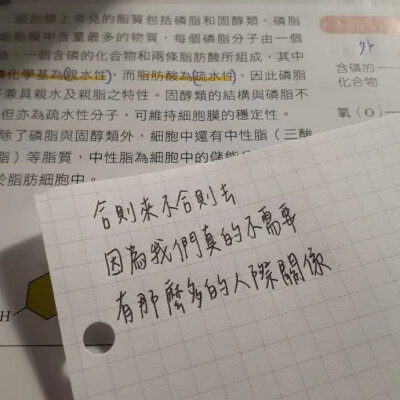 細胞膜上常見的脂質包括磷脂和固醇類。磷脂
細胞膜中含量最多的物質，每個磷脂分子由一個
油、一個含磷的化合物和兩條脂肪酸所組成，其中
化學基為親水性，而脂肪酸為疏水性，因此磷脂
兼具親水及親脂之特性。固醇類的結構與磷脂不
但亦為疏水性分子，可維持細胞膜的穩定性。
除了磷脂與固醇類外，細胞中還有中性脂（三酸
脂）等脂質，中性脂為細胞中的儲能
於脂肪細胞中。
含磷的
化合物
氧（O）
H
合則來不合則去
因為我們真的不需要
有那麼多的人際關係